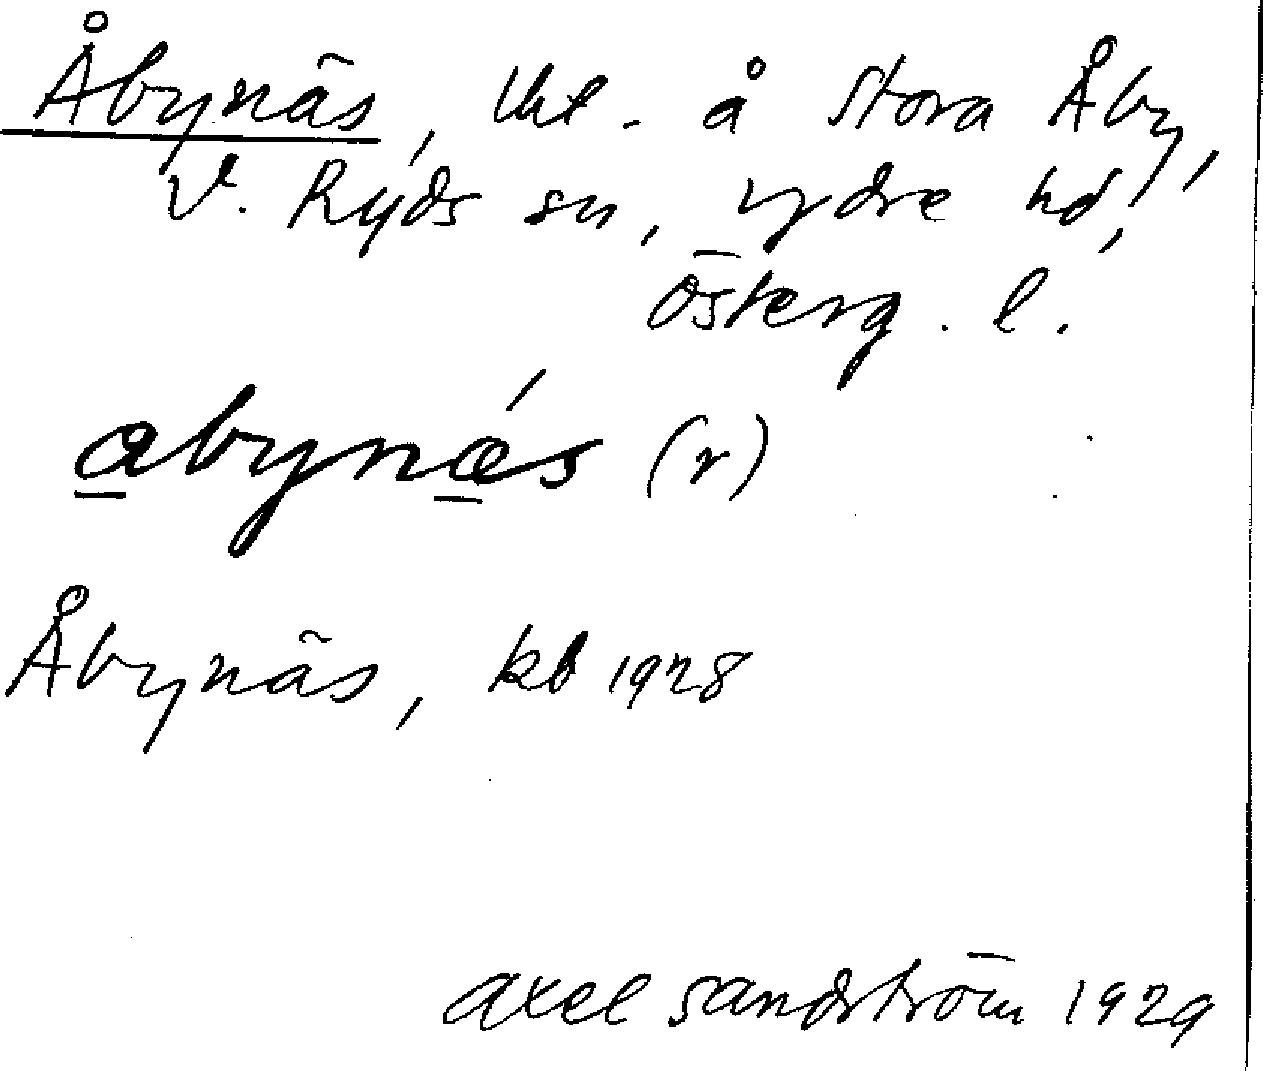 Åbynäs, lht. å Stora Åby,
V. Ryds sn, Ydre hd,
Österg. l.
abynäs (r)
Åbynäs, kb 1928
Axel Sandström 1929